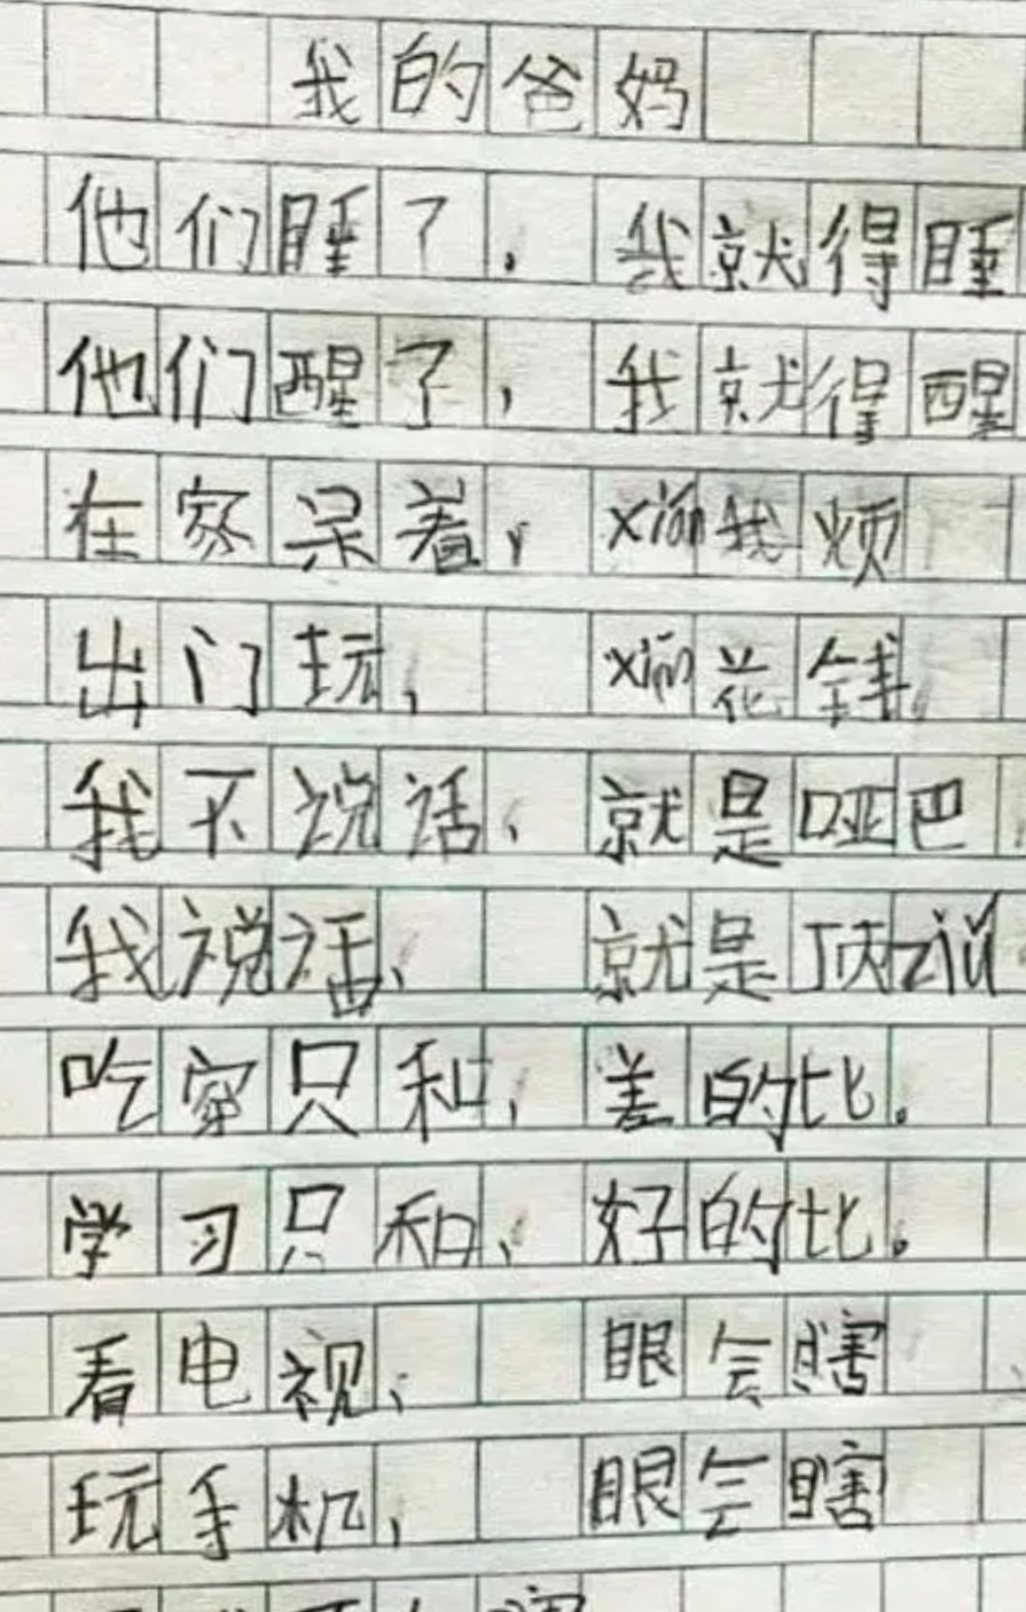 我的爸妈
他们睡了，我就得睡
他们醒了，我就得醒
在家呆着，xián我烦
出门玩，xián花钱
我不说话，就是哑巴
我说话，就是顶ziǔ
吃穿只和，差的比。
学习只和，好的比。
看电视，眼会瞎
玩手机，眼会瞎